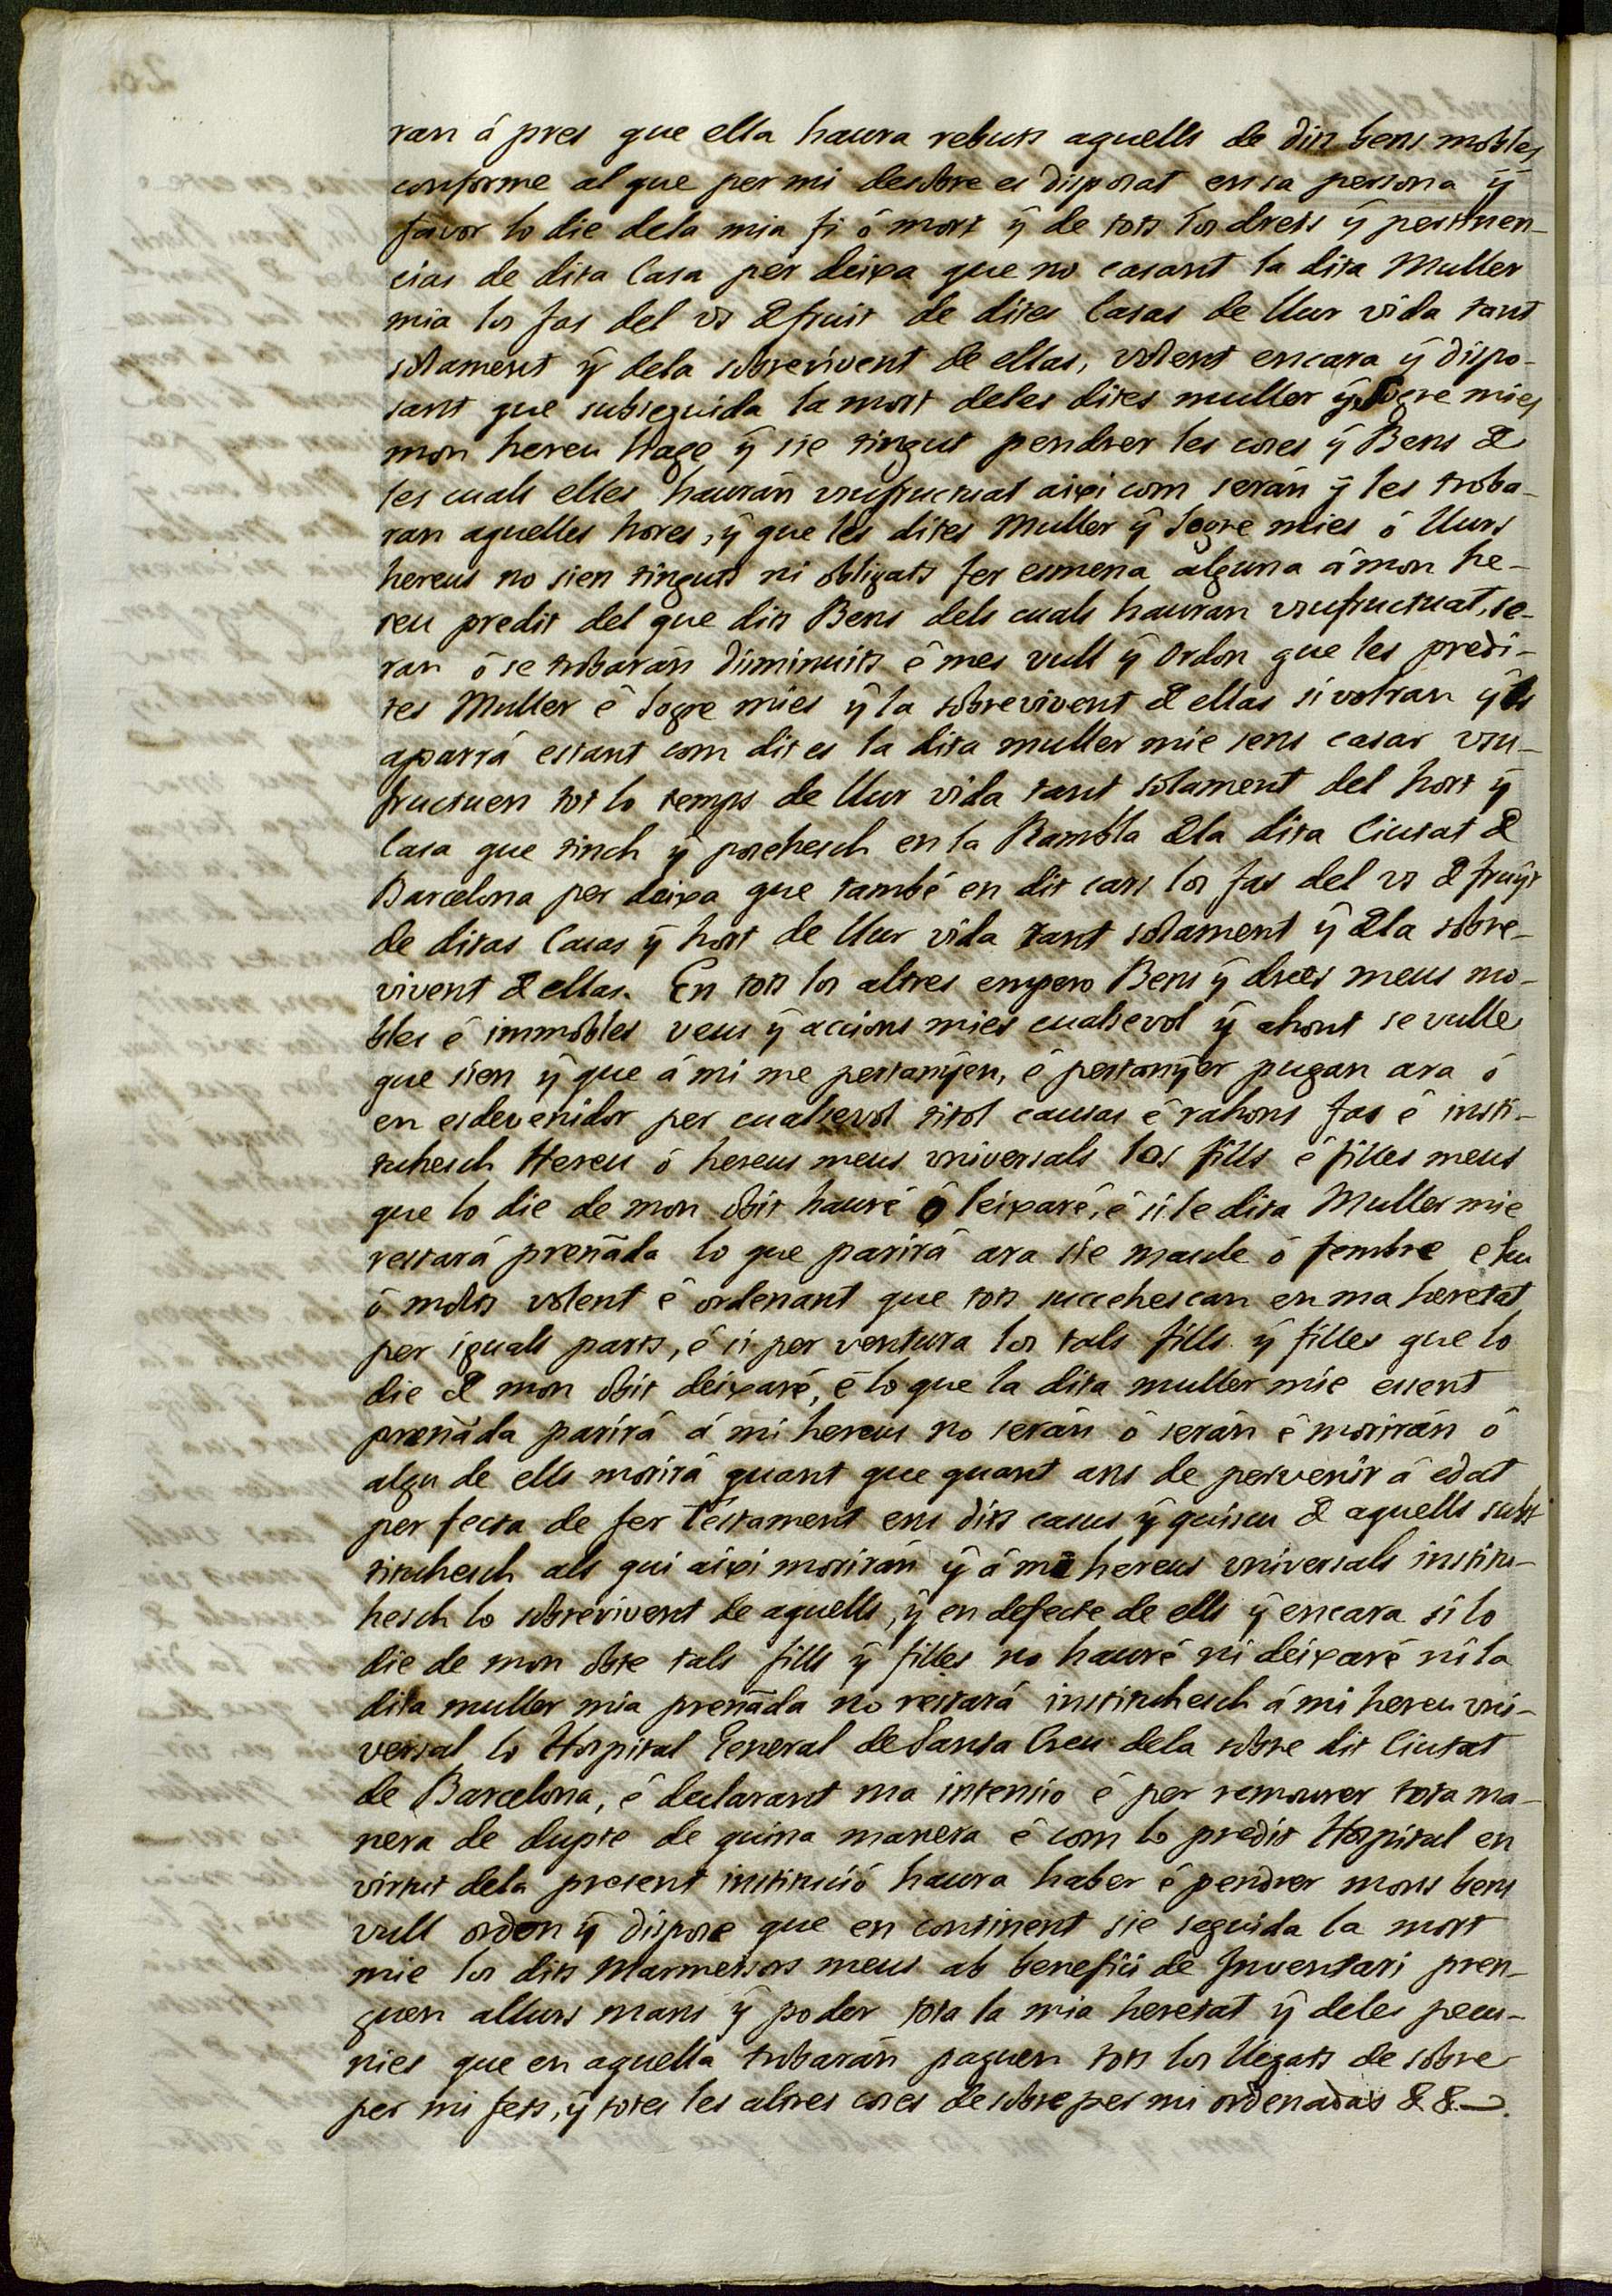 ran á pres que ella haura rebuts aquells de dits bens mobles
conforme al que per mi desobre es disposat en sa persona ÿ
favor lo die dela mia fi ó mort ÿ de tots los drets ÿ pertinen-
cias de dita Casa per deixa que no casant la dita Muller
mia los fas del us & fruit de dites Casas de llur vida tant
solament ÿ dela sobrevivent de ellas, volent encara ÿ dispo-
sant que subseguida la mort deles dites muller ÿ Sogre mies
mon hereu hage ÿ sie tingut pendrer les coses ÿ Bens &
les cuals elles haurán usufructuat aixi com serán ÿ les troba-
ran aquelles hores, ÿ que les dites Muller ÿ Sogre mies ó llurs
hereus no sien tinguts ni obligats fer esmena alguna á mon he-
reu predit del que dits Bens dels cuals hauran usufructuat, se-
ran ó se trobarán diminuits é mes vull ÿ Ordon que les predi-
tes Muller é Sogre mies ÿ la sobrevivent & ellas si volran ÿ ls
aparrá estant com dit es la dita muller mie sens casar usu-
fructuen tot lo temps de llur vida tant solament del hort ÿ
Casa que tinch ÿ posehesch en la Rambla &la dita Ciutat &
Barcelona per deixa que també en dit cars los fas del us & fruÿt
de ditas Casas ÿ hort de llur vida tant solament ÿ &la sobre-
vivent & ellas. En tots los altres empero Bens ÿ drets meus mo-
bles é immobles veus ÿ accions mies cualsevol ÿ ahont se vulle
que sien ÿ que á mi me pertanÿen, é pertanÿer pugan ara ó
en esdevenidor per cualsevol titol causas é rahons fas é insti-
tuhesch Hereu ó hereus meus universals los fills é filles meus
que lo die de mon obit hauré ó leixaré, é si le dita Muller mie
restará preñada lo que parirá ara sie mascle ó fembre e hu
ó molts volent é ordenant que tots succehescan en ma heretat
per iguals parts, é si per ventura los tals fills ÿ filles que lo
die & mon obit deixaré, é lo que la dita muller mie essent
preñada parirá á mi hereus no serán ó serán é morirán ó
algu de ells morirá quant que quant ans de pervenir á edat
perfecta de fer Testament ens dits casus ÿ quiscu & aquells subs
tituhesch als qui aixi morirán ÿ á mi hereus universals institu-
hesch lo sobrevivent de aquells, ÿ en defecte de ells ÿ encara si lo
die de mon obte tals fills ÿ filles no hauré ni deixaré ni la
dita muller mia preñada no restará instituhesch á mi hereu uni-
versal lo Hospital General de Santa Creu dela sobre dit Ciutat
de Barcelona, é declarant ma intensio é per remourer tota ma-
nera de dupte de quina manera é com lo predit Hospital en
virtut dela present institució haura haber é pendrer mons bens
vull orden ÿ dispose que en continent sie seguida la mort
mie los dits Marmessors meus ab benefici de Inventari pren-
guen allurs mans ÿ poder tota la mia heretat ÿ deles pecu-
nies que en aquella trobarán paguen tots los llegats de sobre
per mi fets, ÿ totes les altres coses desobre per mi ordenadas & &.